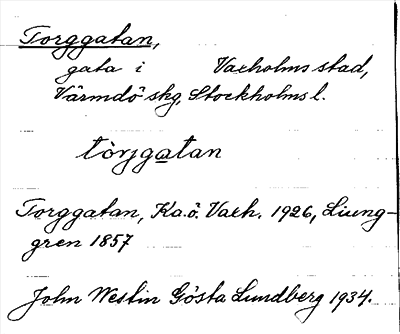 Torggatan,
gata i Vaxholms stad,
Värmdö skg, Stockholms l.
tòrjgatan
Torggatan, Ka.ö. Vaxh. 1926, Ljung-
gren 1857
John Westin Gösta Lundberg 1934.